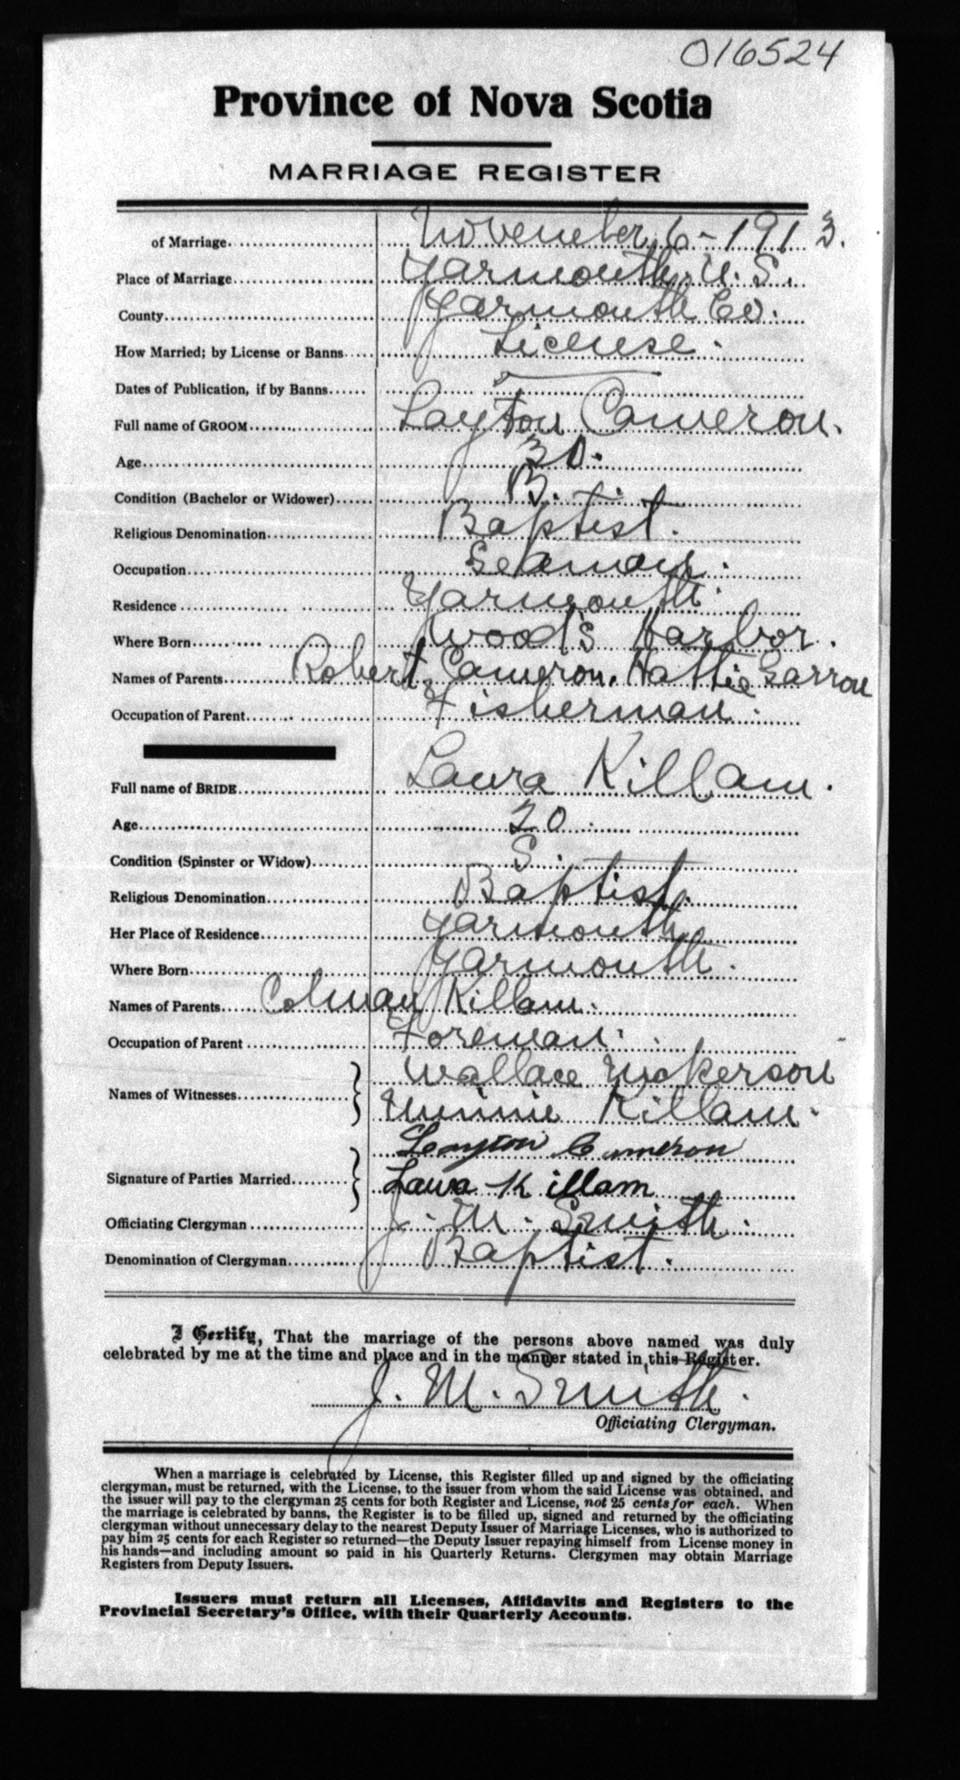 016524
Province of Nova Scotia
MARRIAGE REGISTER
of Marriage November 6-1913.
Place of Marriage Yarmouth, N.S.
County Yarmouth Co.
How Married; by License or Banns License.
Dates of Publication, if by Banns
Full name of GROOM Layton Cameron.
Age 30.
Condition (Bachelor or Widower) B.
Religious Denomination Baptist.
Occupation Seaman.
Residence Yarmouth.
Where Born Wood's Harbor.
Names of Parents Robert Cameron, Hattie
Occupation of Parent Fisherman.
Full name of BRIDE Laura Killam.
Age 20
Condition (Spinster or Widow) S.
Religious Denomination Baptist.
Her Place of Residence Yarmouth
Where Born Yarmouth.
Names of Parents Colman Killam.
Occupation of Parent Foreman.
Wallace Nickerson
Names of Witnesses
Minnie Killam.
Layton Cameron
Signature of Parties Married Laura Killam
Officiating Clergyman J. M. Smith.
Denomination of Clergyman Baptist.
I Certify, That the marriage of the persons above named was duly
celebrated by me at the time and place and in the manner stated in this Register.
J. M. Smith.
Officiating Clergyman.
When a marriage is celebrated by License, this Register filled up and signed by the officiating
clergyman, must be returned, with the License, to the issuer from whom the said License was obtained, and
the issuer will pay to the clergyman 25 cents for both Register and License, not 25 cents for each. When
the marriage is celebrated by banns, the Register is to be filled up, signed and returned by the officiating
clergyman without unnecessary delay to the nearest Deputy Issuer of Marriage Licenses, who is authorized to
pay him 25 cents for each Register so returned—the Deputy Issuer repaying himself from License money in
his hands—and including amount so paid in his Quarterly Returns. Clergymen may obtain Marriage
Registers from Deputy Issuers.
Issuers must return all Licenses, Affidavits and Registers to the
Provincial Secretary's Office, with their Quarterly Accounts.